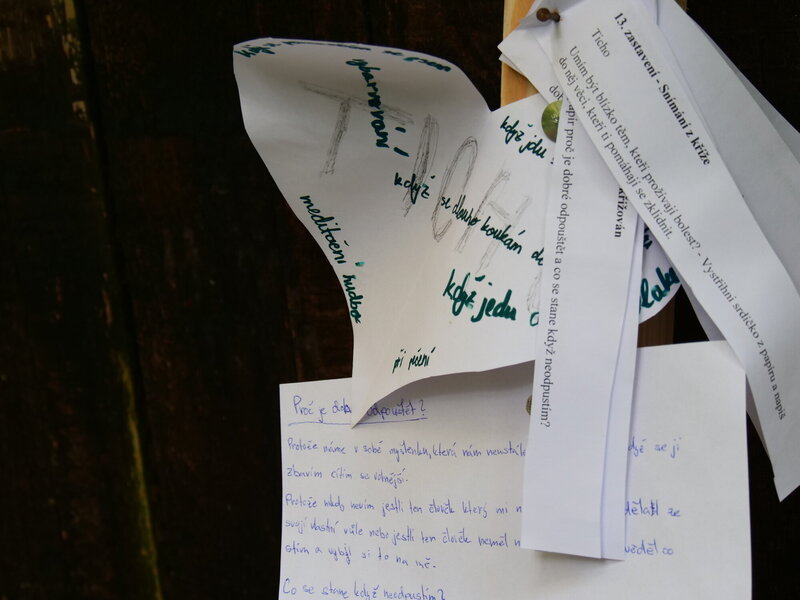 13. zastavení - Snímání z kříže
Ticho
Umím být blízko těm, kteří prožívají bolest? - Vystřihni srdíčko z papíru a napiš
do něj věci, kteří ti pomáhají se zklidnit.
křižován
papír proč je dobré odpouštět a co se stane když neodpustím?
TICHO
když jedu
když se dlouho koukám do
meditační hudba
když jedu
Proč je odpouštět?
Protože máme v sobě myšlenku, která nám neustále když se jí
zbavím cítím se volnější.
Protože nikdy nevím jestli ten člověk který mi ze
svojí vlastní vůle nebo jestli ten člověk neměl co
s tím a vybyl si to na mě.
Co se stane když neodpustím?